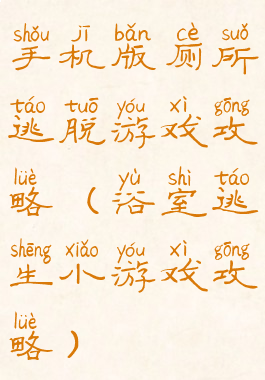 shǒu jī bǎn cè suǒ
手机版厕所
táo tuō yóu xì gōng
逃脱游戏攻
lüè yù shì táo
略（浴室逃
shēng xiǎo yóu xì gōng
生小游戏攻
lüè
略）